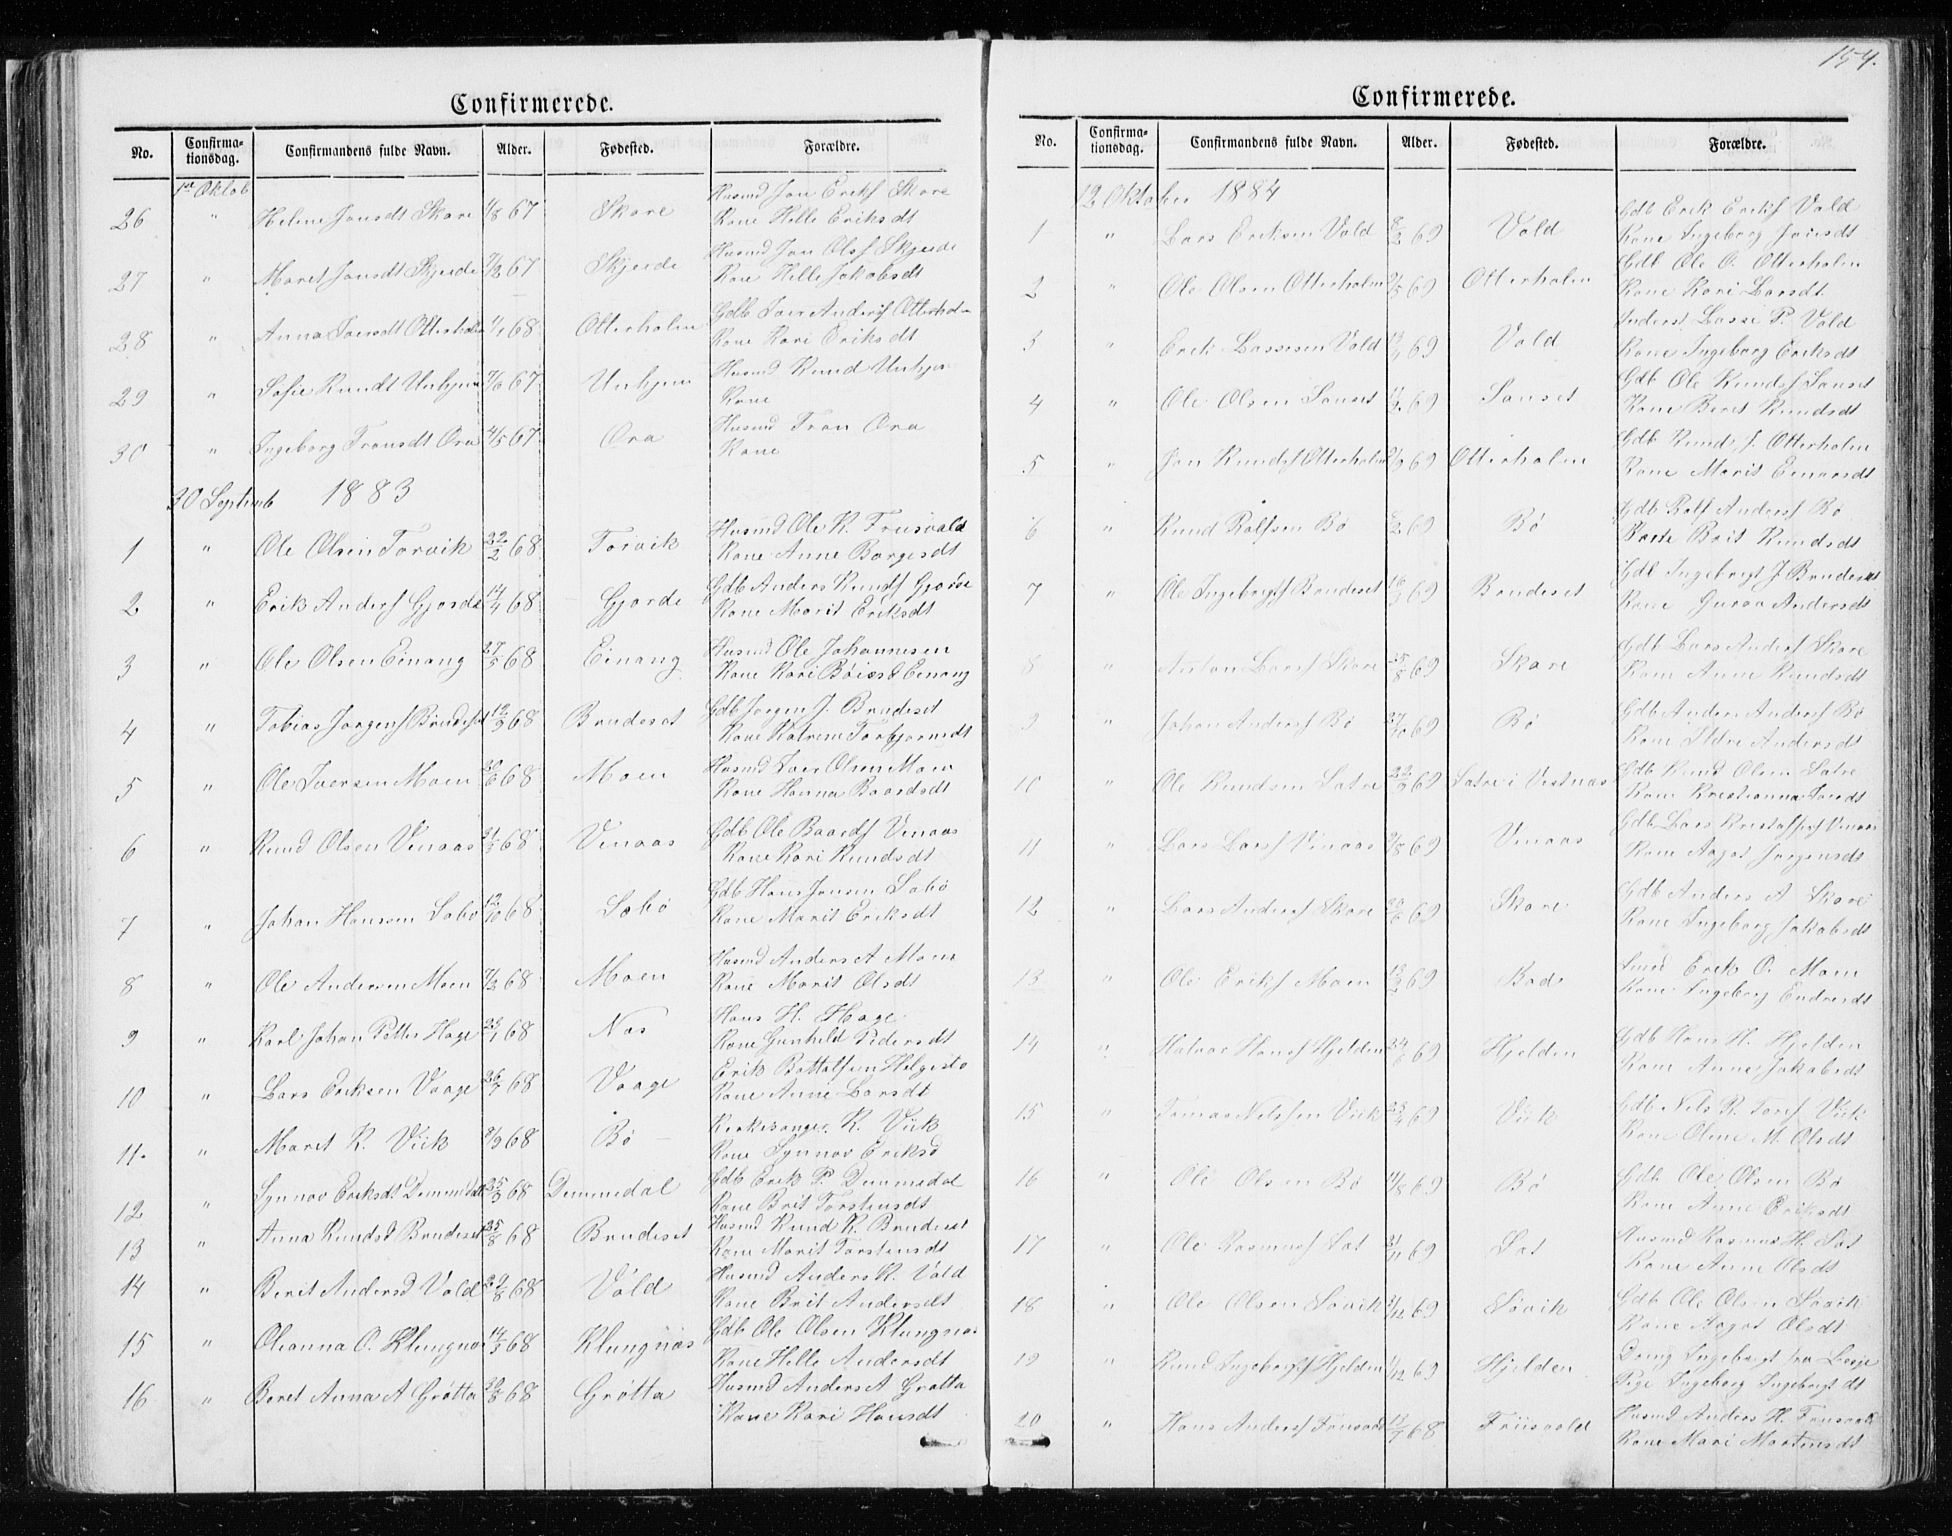 154.
Confirmerede.
No. Confirmationsdag. Confirmandens fulde Navn. Alder. Fødested. Forældre.
1ste Oktob
26 " Helene Jonsdt Skare 1/8 67 Skare Husmd Jon Eriks Skare
Kone Helle Eriksdt
27 " Maret Jonsdt Skjerde 67 Skjerde Husmd Jon Olsf Skjerde
Kone Helle Jakobsdt
28 " Anna Iversdt Otterholm 1/1 68 Otterholm Gdb Iver Andersf Otterholm
Kone Kari Eriksdt
29 " Sofie Knudt Unhjem 67 Unhjem Husmd Knud Unhjem
Kone
30 " Ingeborg Tronsdt Øra 4/5 67 Øra Husmd Tron Øra
Kone
30 Septemb 1883
1 " Ole Olsen Torvik 22/2 68 Torvik Husmd Ole K. Friisvold
Kone Anne Borgesdt
2 " Erik Andersf Gjørde 14/4 68 Gjørde Gdb Anders Knudsf Gjørde
Kone Marit Eriksdt
3 " Ole Olsen Einang 27/5 68 Einang Husmd Ole Johannesen
Kone Kari Einang
4 " Tobias Jørgensf Brudeset 12/3 68 Brudeset Gdb Jørgen J. Brudeset
Kone Katrine Torbjørnsdt
5 " Ole Iversen Moen 68 Moen Husmd Iver Olsen Moen
Kone Hanna Baardsdt
6 " Knud Olsen Venaas 21/3 68 Venaas Gdb Ole Baardsf Venaas
Kone Kari Knudsdt
7 " Johan Hansen Søbø 12/10 68 Søbø Gdb Hans Jensen Søbø
Kone Marit Eriksdt
8 " Ole Andersen Moen 68 Moen Husmd Anders A Moen
Kone Marit Olsdt
9 " Karl Johan Petter Hage 23/1 68 Nes Hans H. Hage
Kone Gunhild Pedersdt
10 " Lars Eriksen Vaage 68 Vaage Erik Bottolfsen Helgesto
Kone Anne Larsdt
11. " Maret K. Viik 8/9 68 Bø Kirkesanger K. Viik
Kone Synnøv Eriksd
12 " Synnøv Eriksdt Dummedal 25/3 68 Dummedal Gdb Erik P. Dummedal
Kone Brit Torstensdt
13 " Anna Knudsd Brudeset 25/8 68 Brudeset Husmd Knud K. Brudeset
Kone Marit Torstensdt
14 " Berit Andersd Vold 68 Vold Husmd Anders K. Vold
Kone Brit Andersdt
15 " Oleanna O. Klungnæs 14/3 68 Klungnæs Gdb Ole Olsen Klungnæs
Kone Helle Andersdt
16 " Beret Anna A Grøtta 68 Grøtta Husmd Anders A Grøtta
Kone Kari Hansdt
Confirmerede.
No. Confirmationsdag. Confirmandens fulde Navn. Alder. Fødested. Forældre.
12 Oktober 1884
1 " Lars Eriksen Vold 69 Vold Gdb Erik Eriksf Vold
Kone Ingeborg Jonsdt
2 " Ole Olsen Otterholm 69 Otterholm Gdb Ole O. Otterholm
Kone Kari Larsdt
3 " Erik Lassesen Vold 69 Vold Inderst Lasse P. Vold
Kone Ingeborg Eriksdt
4 " Ole Olsen Sanset 69 Sanset Gdb Ole Knudsf Sanset
Kone Beret Knudsdt
5 " Jon Knudsf Otterholm 69 Otterholm Gdb Knud J. Otterholm
Kone Marit Einarsdt
6 " Knud Rolfsen Bø 69 Bø Gdb Rolf Andersf Bø
Kone Brit Knudsdt
7 " Ole Ingebrigtsf Brudeset 69 Brudeset Gdb Ingebrigt J. Brudeset
Kone Guroa Andersdt
8 " Anton Larsf Skare 25/8 69 Skare Gdb Lars Andersf Skare
Kone Anne Knudsdt
9 " Johan Andersf Bø 27/10 69 Bø Gdb Anders Andersf Bø
Kone Andersdt
10 " Ole Knudsen Sætre 69 Sætre i Vestnæs Gdb Knud Olsen Sætre
Kone Kristianna
11 " Lars Larsf Venaas 69 Venaas Gdb Lars Kristoffersf Venaas
Kone Aagot Jørgensdt
12 " Lars Andersf Skare 69 Skare Gdb Anders A Skare
Kone Ingeborg Jakobsdt
13 " Ole Eriksf Moen 69 Bad Smed Erik O. Moen
Kone Ingeborg Endresdt
14 " Halvor Hansf Hjelden 69 Hjelden Gdb Hans H. Hjelden
Kone Anne Jakobsdt
15 " Tomas Nelssen Viik 69 Viik Gdb Nils R. Viik
Kone Oline M. Olsdt
16 " Ole Olsen Bø 69 Bø Gdb Ole Olsen Bø
Kone Anne Eriksdt
17 " Ole Rasmusf Sæt 69 Sæt Husmd Rasmus H. Sæt
Kone Anne Olsdt
18 " Ole Olsen Søvik 69 Søvik Gdb Ole Olsen Søvik
Kone Aagot Olsdt
19 " Knud Ingebrigtsf Hjelden 69 Hjelden Dreng Ingebrigt fra Lesje
Pige Ingeborg Ingebrigtdt
20 " Hans Andersf Friisvold 68 Friisvold Husmd Anders H. Friisvold
Kone Mari Mortensdt